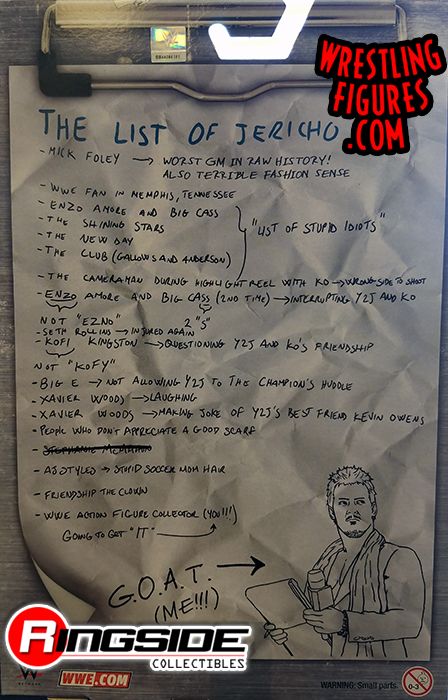 WRESTLING
FIGURES
.COM
THE LIST OF JERICHO
- MICK FOLEY → WORST GM IN RAW HISTORY!
ALSO TERRIBLE FASHION SENSE
- WWE FAN IN MEMPHIS, TENNESSEE
- ENZO AMORE AND BIG CASS
- THE SHINING STARS
- THE NEW DAY
- THE CLUB (GALLOWS AND ANDERSON)
"LIST OF STUPID IDIOTS"
- THE CAMERAMAN DURING HIGHLIGHT REEL WITH KO → WRONG SIDE TO SHOOT
- ENZO AMORE AND BIG CASS (2ND TIME) → INTERRUPTING Y2J AND KO
NOT "EZNO" 2 "S"
- SETH ROLLINS → INJURED AGAIN
- KOFI KINGSTON → QUESTIONING Y2J AND KO'S FRIENDSHIP
NOT "KOFY"
- BIG E → NOT ALLOWING Y2J TO THE CHAMPION'S HUDDLE
- XAVIER WOODS → LAUGHING
- XAVIER WOODS → MAKING JOKE OF Y2J'S BEST FRIEND KEVIN OWENS
- PEOPLE WHO DON'T APPRECIATE A GOOD SCARF
- STEPHANIE MCMAHON
- AJ STYLES → STUPID SOCCER MOM HAIR
- FRIENDSHIP THE CLOWN
- WWE ACTION FIGURE COLLECTOR (YOU!!!)
GOING TO GET "IT"
G.O.A.T. →
(ME!!!)
RINGSIDE
COLLECTIBLES
W
NETWORK
WWE.COM
WARNING: Small parts.
0-3